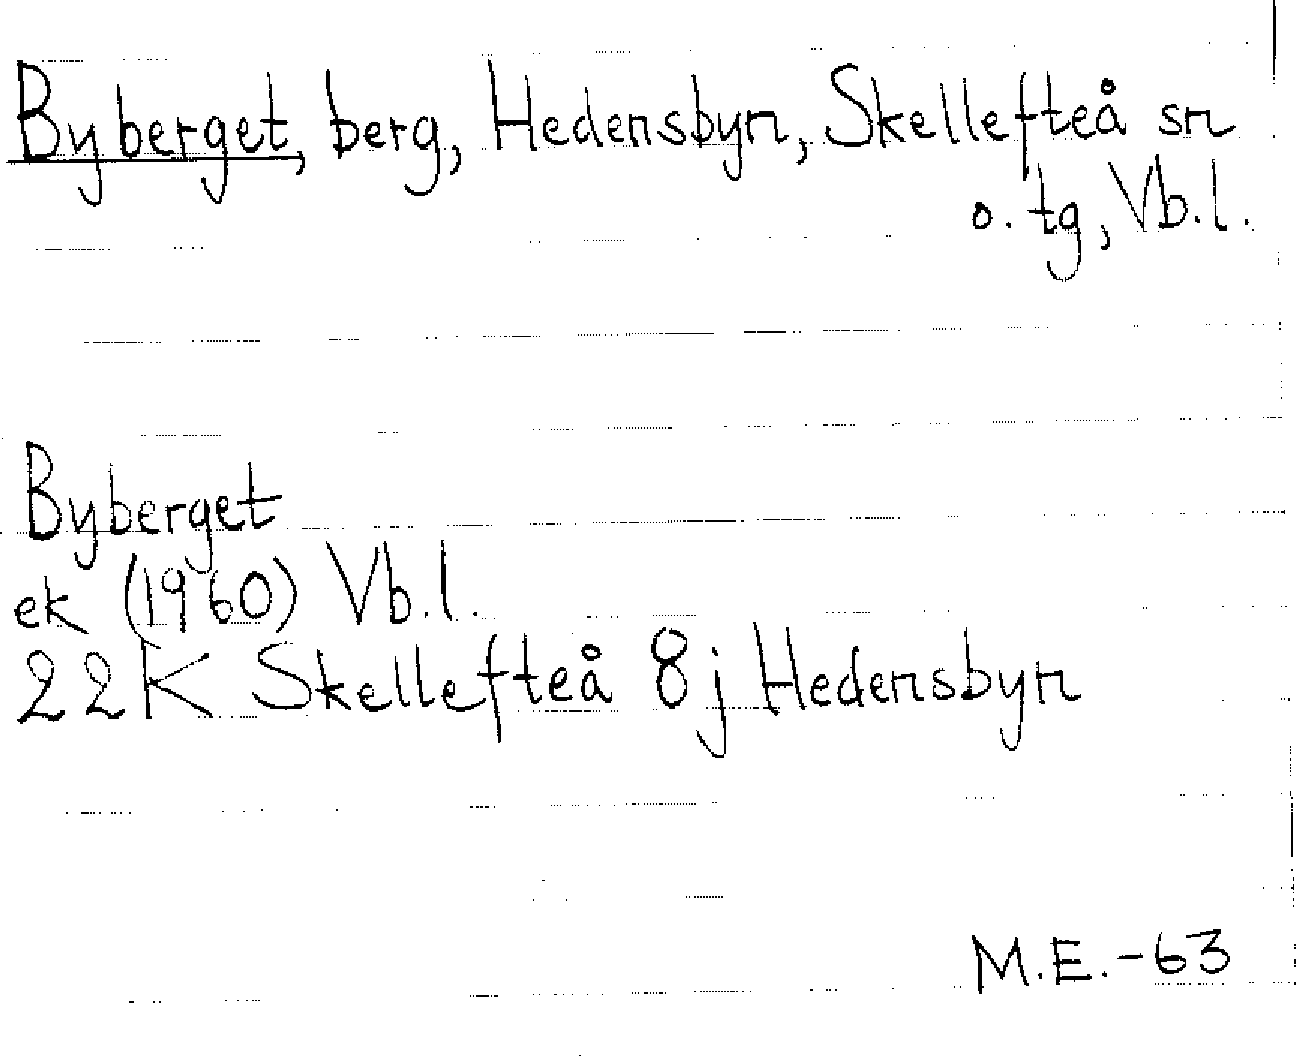 Byberget, berg, Hedensbyn, Skellefteå sn
o. tg, Vb.l.
Byberget
ek (1960) Vb.l.
22K Skellefteå 8j Hedensbyn
M.E.-63